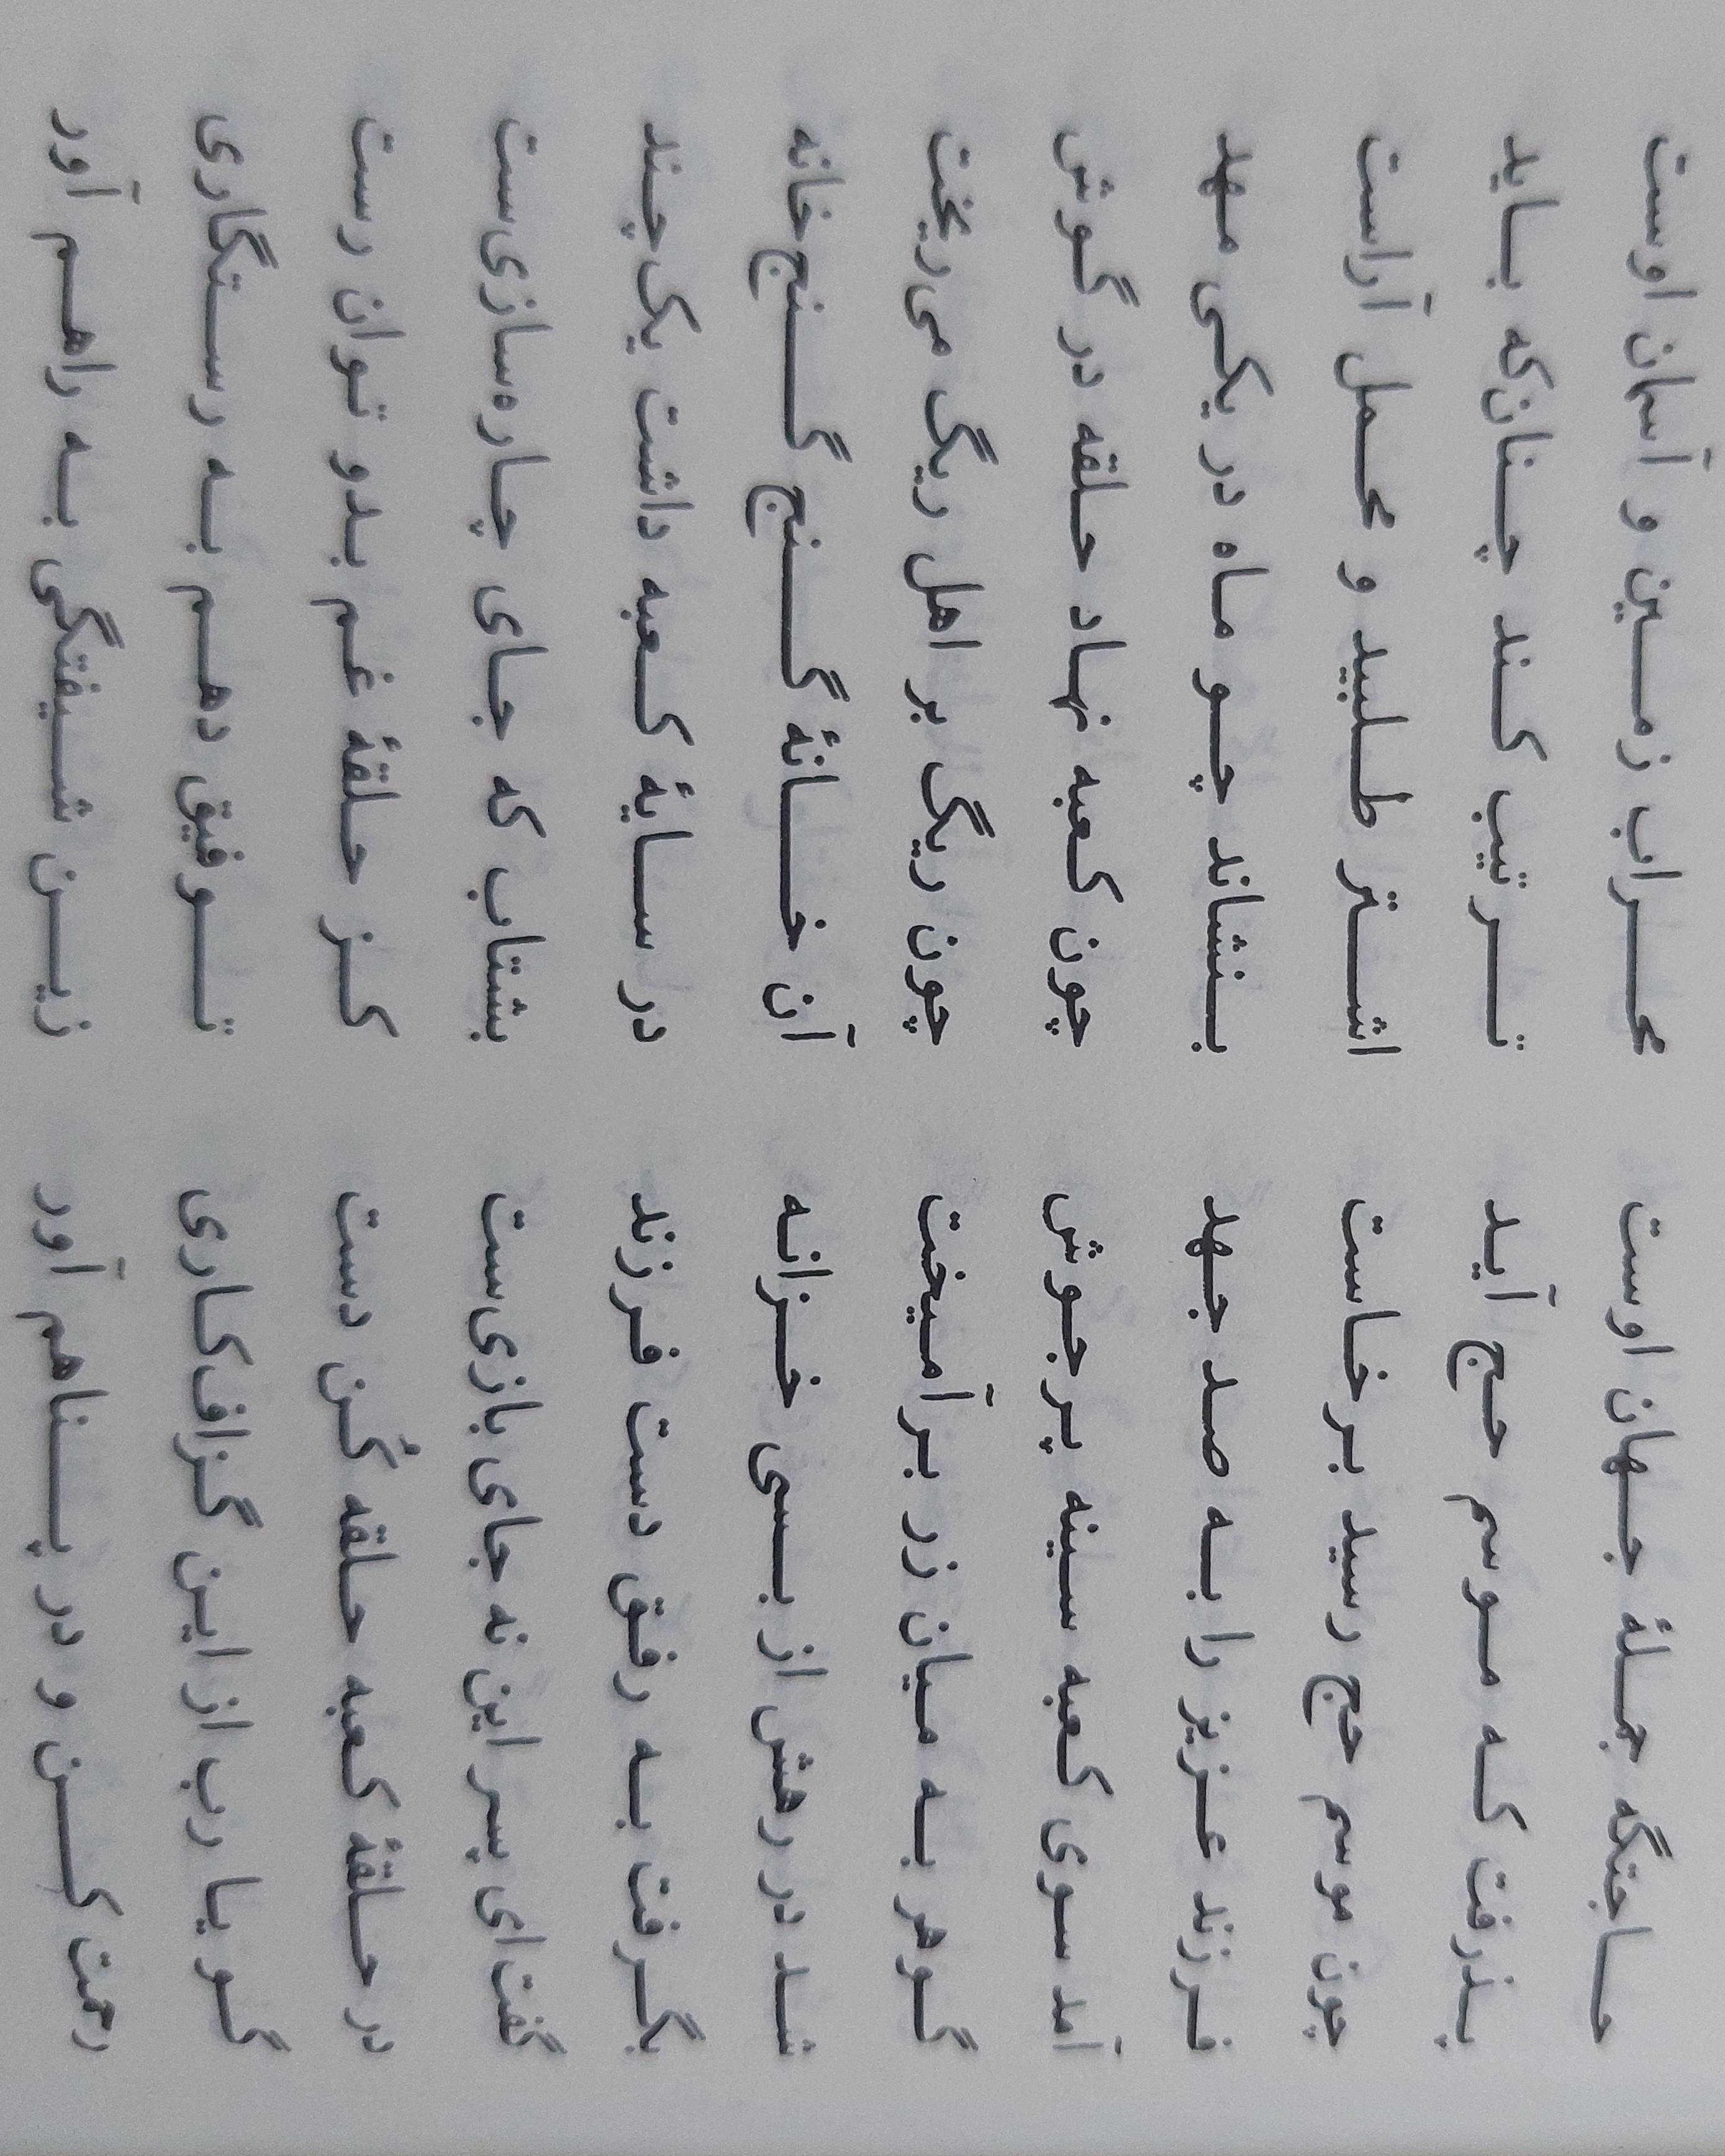 حاجتگه جملهٔ جهان اوست محراب زمین و آسمان اوست
پذرفت که موسم حج آید ترتیب کند چنان‌که باید
چون موسم حج رسید برخاست اشتر طلبید و محمل آراست
فرزند عزیز را به صد جهد بنشاند چو ماه در یکی مهد
آمد سوی کعبه سینه پرجوش چون کعبه نهاد حلقه در گوش
گوهر به میان زر برآمیخت چون ریگ بر اهل ریگ می‌ریخت
شد در رهش از بسی خزانه آن خانهٔ گنج گنج‌خانه
بگرفت به رفق دست فرزند در سایهٔ کعبه داشت یک‌چند
گفت ای پسر این نه جای بازی‌ست بشتاب که جای چاره‌سازی‌ست
در حلقهٔ کعبه حلقه کُن دست کز حلقهٔ غم بدو توان رست
گو یا رب از این گزاف‌کاری توفیق دهم به رستگاری
رحمت کن و در پناهم آور زین شیفتگی به راهم آور